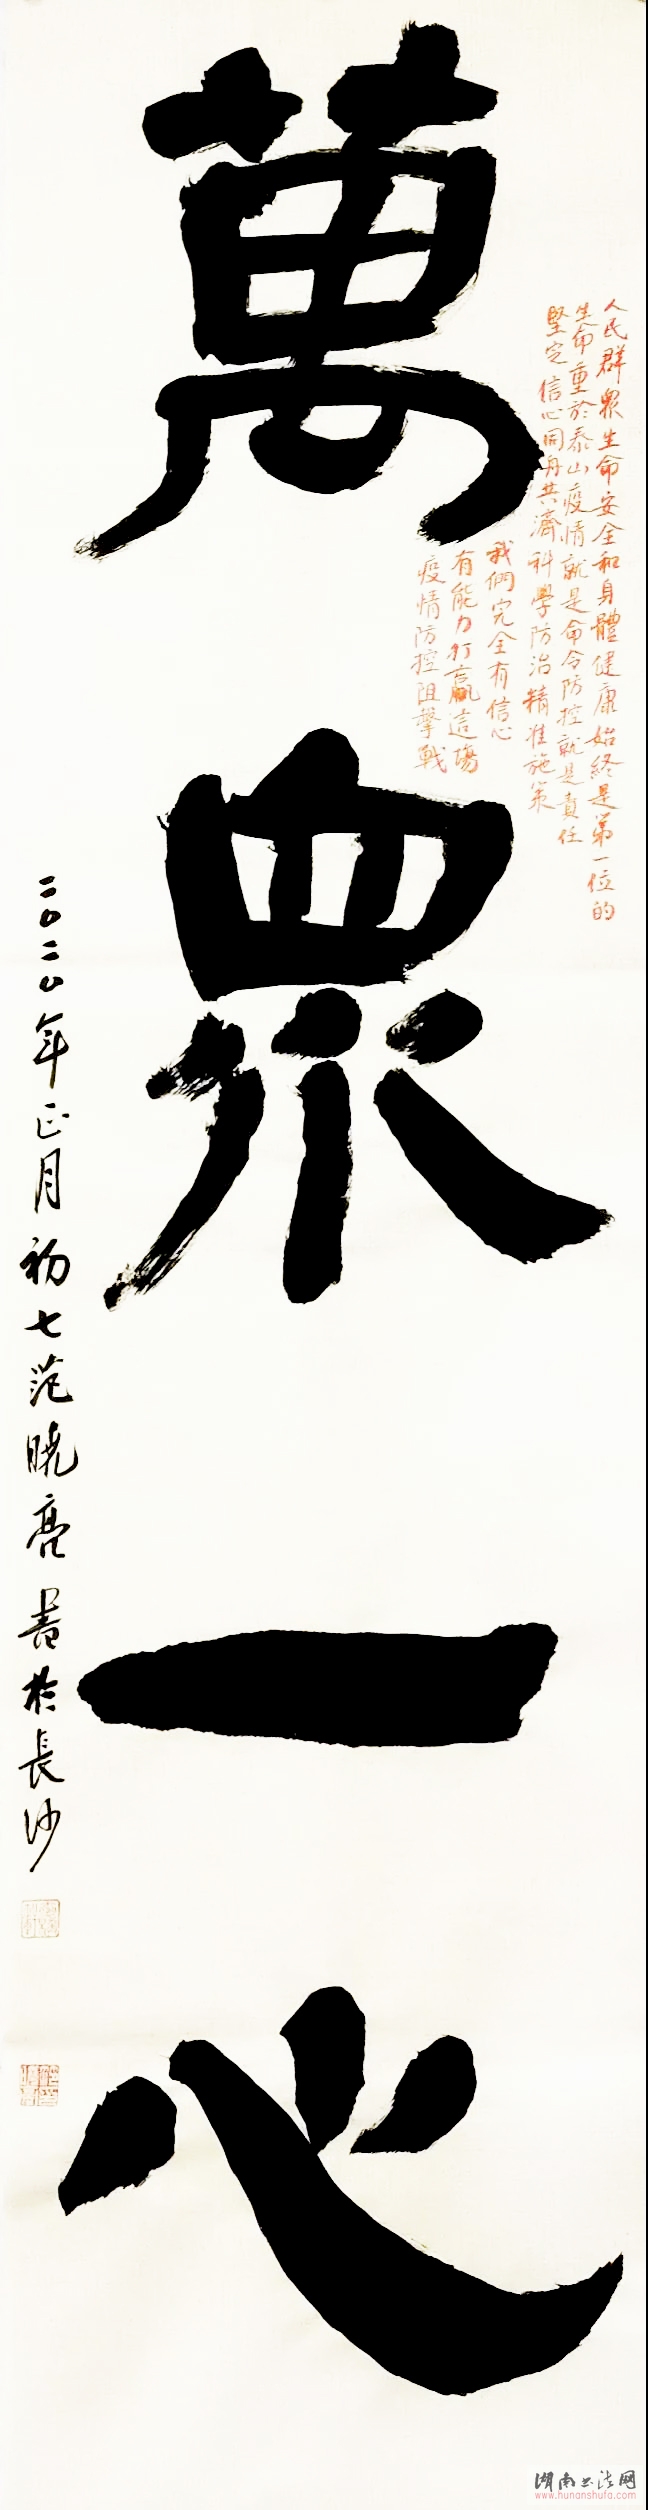 萬眾一心
人民群眾生命安全和身體健康始終是第一位的
生命重於泰山疫情就是命令防控就是責任
堅定信心同舟共濟科學防治精准施策
我們完全有信心
有能力打贏這場
疫情防控阻擊戰
二〇二〇年正月初七范曉亮書於長沙
湖南书法网
www.hunanshufa.com